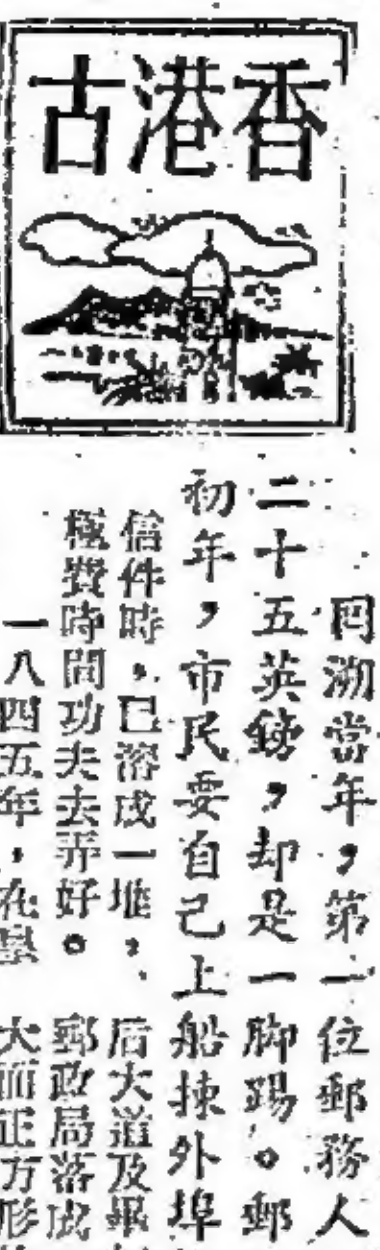 香港古
回溯當年，第一位郵務人
二十五英鎊，却是一脚踢。郵
初年，市民要自己上船揀外埠
信件時，已溶成一堆，
極費時間功夫去弄好。
一八四五年，在
后大道及畢
郵政局落成
大而正方形